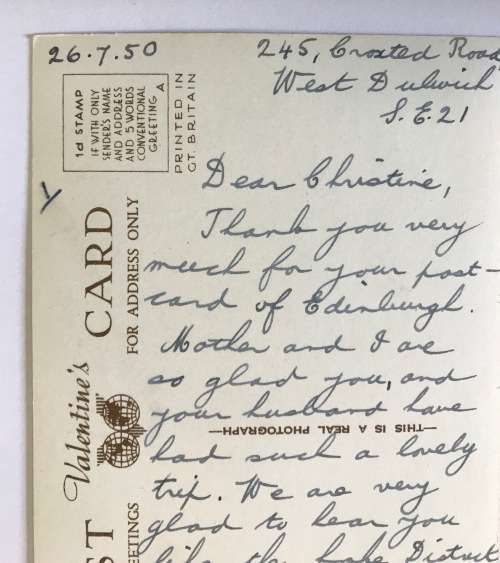 26.7.50
245, Croxted Road
West Dulwich
S.E.21
1d STAMP
IF WITH ONLY
SENDER'S NAME
AND ADDRESS
AND 5 WORDS
CONVENTIONAL
GREETING A
PRINTED IN
GT. BRITAIN
Dear Christine,
Thank you very
much for your post-
card of Edinburgh.
Mother and I are
so glad you, and
your husband have
had such a lovely
trip. We are very
glad to hear you
like the Lake District
CARD
FOR ADDRESS ONLY
Valentine's
—THIS IS A REAL PHOTOGRAPH—
ST
EETINGS